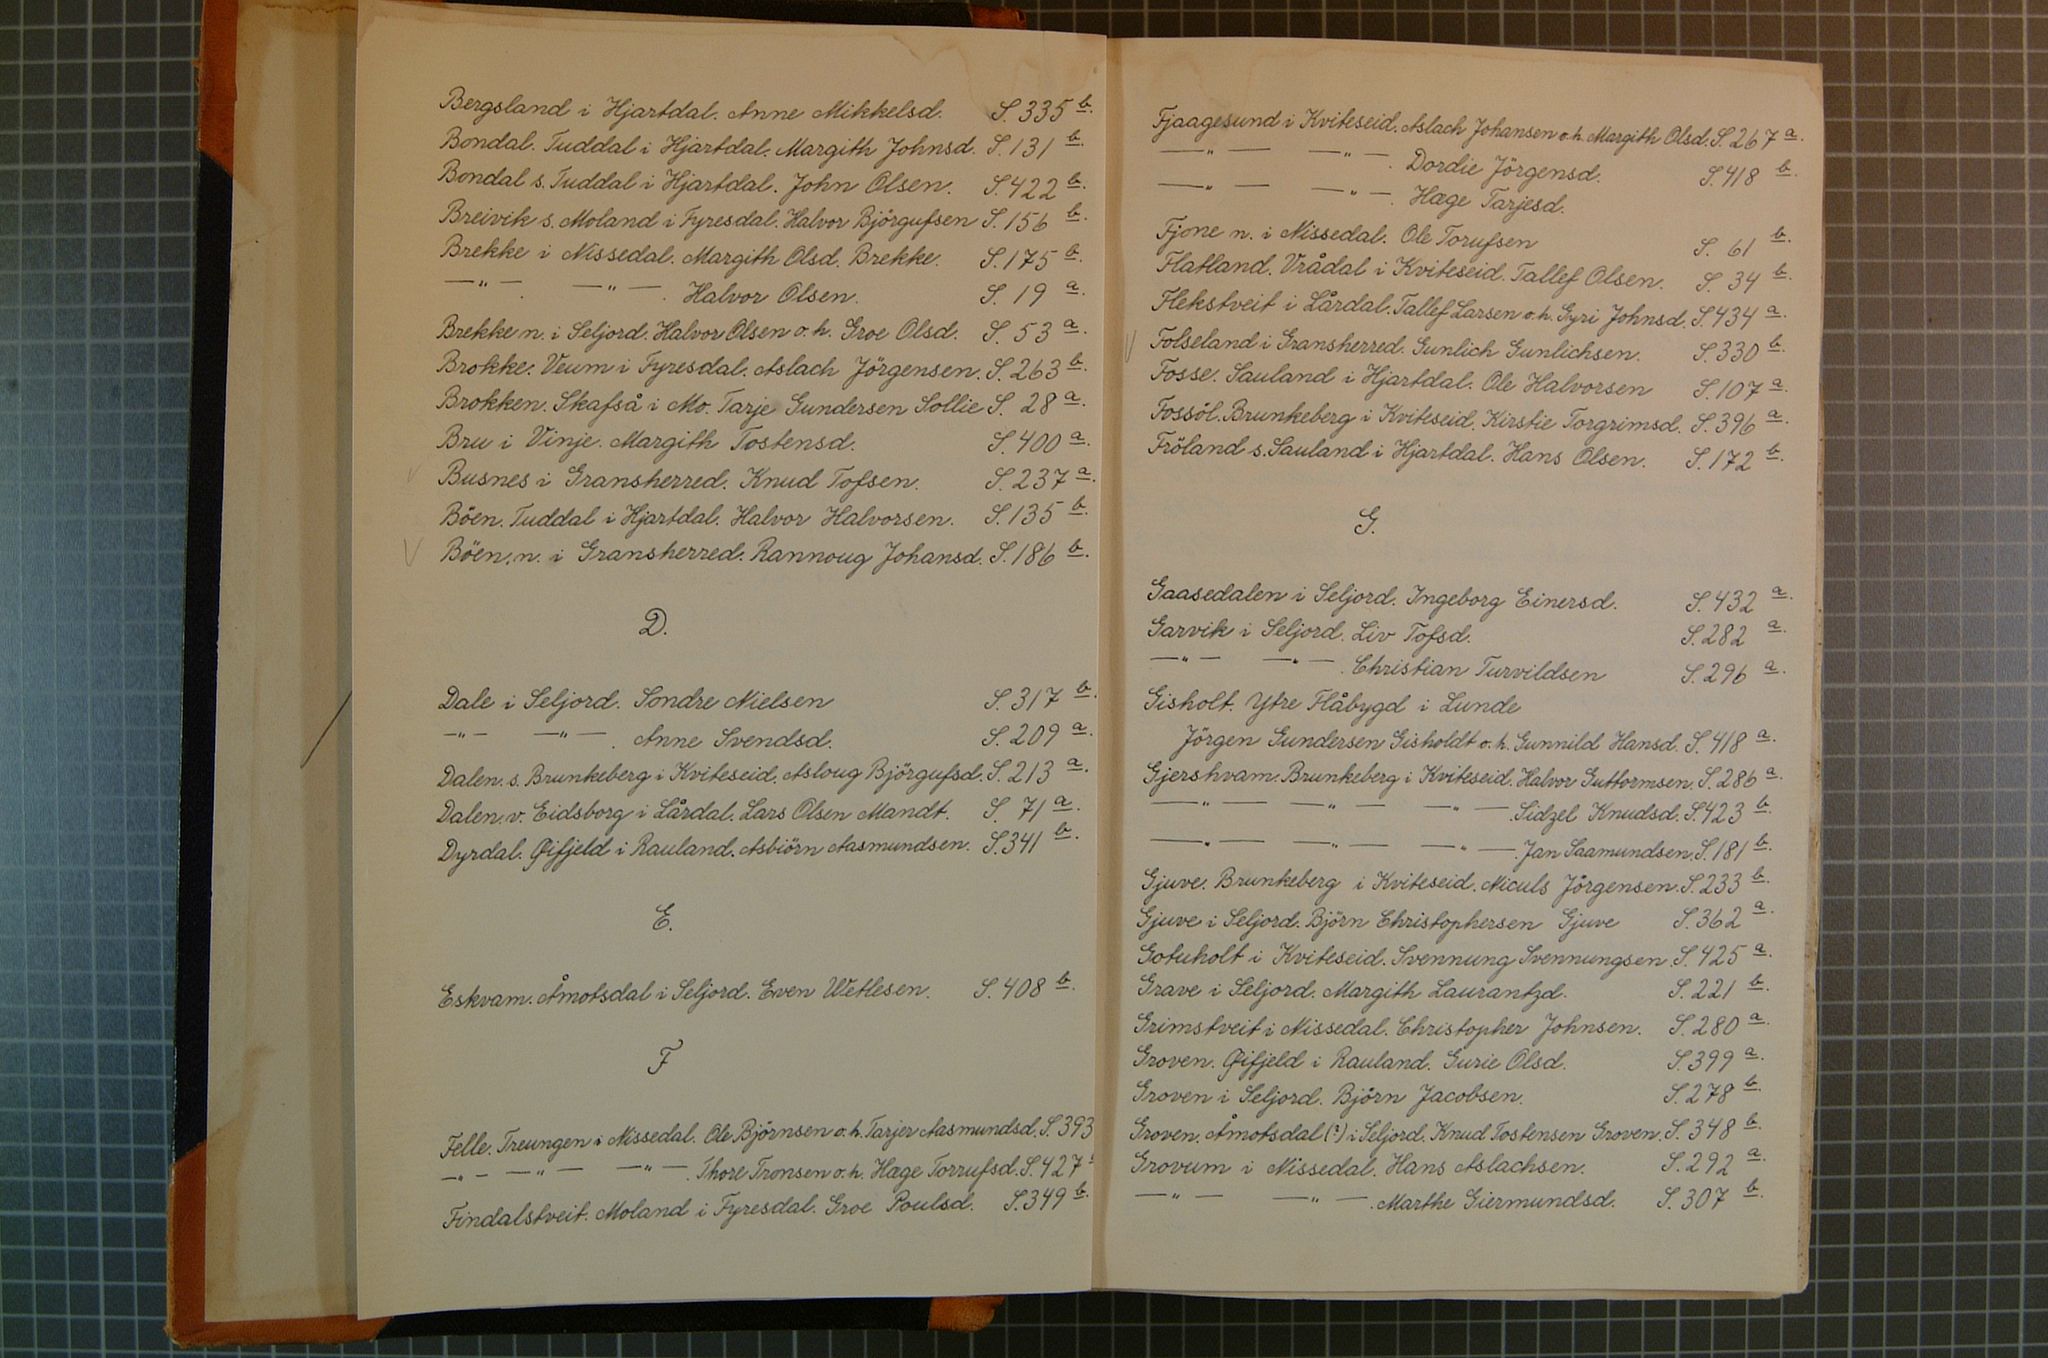 Bergsland i Hjartdal. Anne Mikkelsd. S. 335 b.
Bondal. Tuddal i Hjartdal. Margith Johnsd. S. 131 b.
Bondal s. Tuddal i Hjartdal. John Olsen. S. 422 b.
Breivik s. Moland i Fyresdal. Halvor Björgufsen S. 156 b.
Brekke i Nissedal. Margith Olsd. Brekke. S. 175 b.
—"— . —"— . Halvor Olsen. S. 19 a.
Brekke n. i Seljord. Halvor Olsen o. h. Groe Olsd. S. 53 a.
Brokke. Veum i Fyresdal. Aslach Jörgensen. S. 263 b.
Brokken. Skafså i Mo. Tarje Gundersen Sollie S. 28 a.
Bru i Vinje. Margith Tostensd. S. 400 a.
Busnes i Gransherred. Knud Tofsen. S. 237 a.
Böen. Tuddal i Hjartdal. Halvor Halvorsen. S. 135 b.
Böen. n. i Gransherred. Rannoug Johansd. S. 186 b.
D.
Dale i Seljord. Sondre Nielsen S. 317 b.
—"— —"— . Anne Svendsd. S. 209 a.
Dalen. s. Brunkeberg i Kviteseid. Asloug Björgufsd. S. 213 a.
Dalen. v. Eidsborg i Lårdal. Lars Olsen Mandt. S. 71 a.
Dyrdal. Øifjeld i Rauland. Asbiörn Aasmundsen. S. 341 b.
E.
Eskvam. Åmotsdal i Seljord. Even Wetlesen. S. 408 b.
F
Felle. Treungen i Nissedal. Ole Björnsen o. h. Tarjer Aasmundsd. S. 393
—"— —"— —"— . Thore Tronsen o. h. Hæge Torrufsd. S. 427
Findalstveit. Moland i Fyresdal. Groe Poulsd. S. 349 b.
Fjaagesund i Kviteseid. Aslach Johansen o. h. Margith Olsd. S. 267 a.
—"— —"— . Dordie Jörgensd. S. 418 b.
—"— —"— . Hæge Tarjesd.
Fjone n. i Nissedal. Ole Torufsen S. 61 b.
Flatland. Vrådal i Kviteseid. Tallef Olsen. S. 34 b.
Flekstveit i Lårdal. Tallef Larsen o. h. Gyri Johnsd. S. 434 a.
Folseland i Gransherred. Gunlich Gunlichsen. S. 330 b.
Fosse. Sauland i Hjartdal. Ole Halvorsen S. 107 a.
Fossöl. Brunkeberg i Kviteseid. Kirstie Torgrimsd. S. 396 a.
Fröland s. Sauland i Hjartdal. Hans Olsen. S. 172 b.
G.
Gaasedalen i Seljord. Ingeborg Einersd. S. 432 a.
Garvik i Seljord. Liv Tofsd. S. 282 a.
—"— —"— . Christian Turvildsen S. 296 a.
Gisholt. Ytre Flåbygd i Lunde
Jörgen Gundersen Gisholdt o. h. Gunnild Hansd. S. 418 a.
Gjershvam. Brunkeberg i Kviteseid. Halvor Guttormsen. S. 286 a.
—"— —"— —"— . Sidzel Knudsd. S. 423 b.
—"— —"— —"— . Jan Saamundsen. S. 181 b.
Gjuve. Brunkeberg i Kviteseid. Niculs Jörgensen. S. 233 b.
Gjuve i Seljord. Björn Christophersen Gjuve S. 362 a.
Gotuholt i Kviteseid. Svennung Svennungsen. S. 425 a.
Grave i Seljord. Margith Laurantzd. S. 221 b.
Grimstveit i Nissedal. Christopher Johnsen. S. 280 a.
Groven. Øifjeld i Rauland. Gurie Olsd. S. 399 a.
Groven i Seljord. Björn Jacobsen. S. 278 b.
Groven. Åmotsdal (?) i Seljord. Knud Tostensen Groven. S. 348 b.
Grovum i Nissedal. Hans Aslachsen. S. 292 a.
—"— —"— . Marthe Giermundsd. S. 307 b.